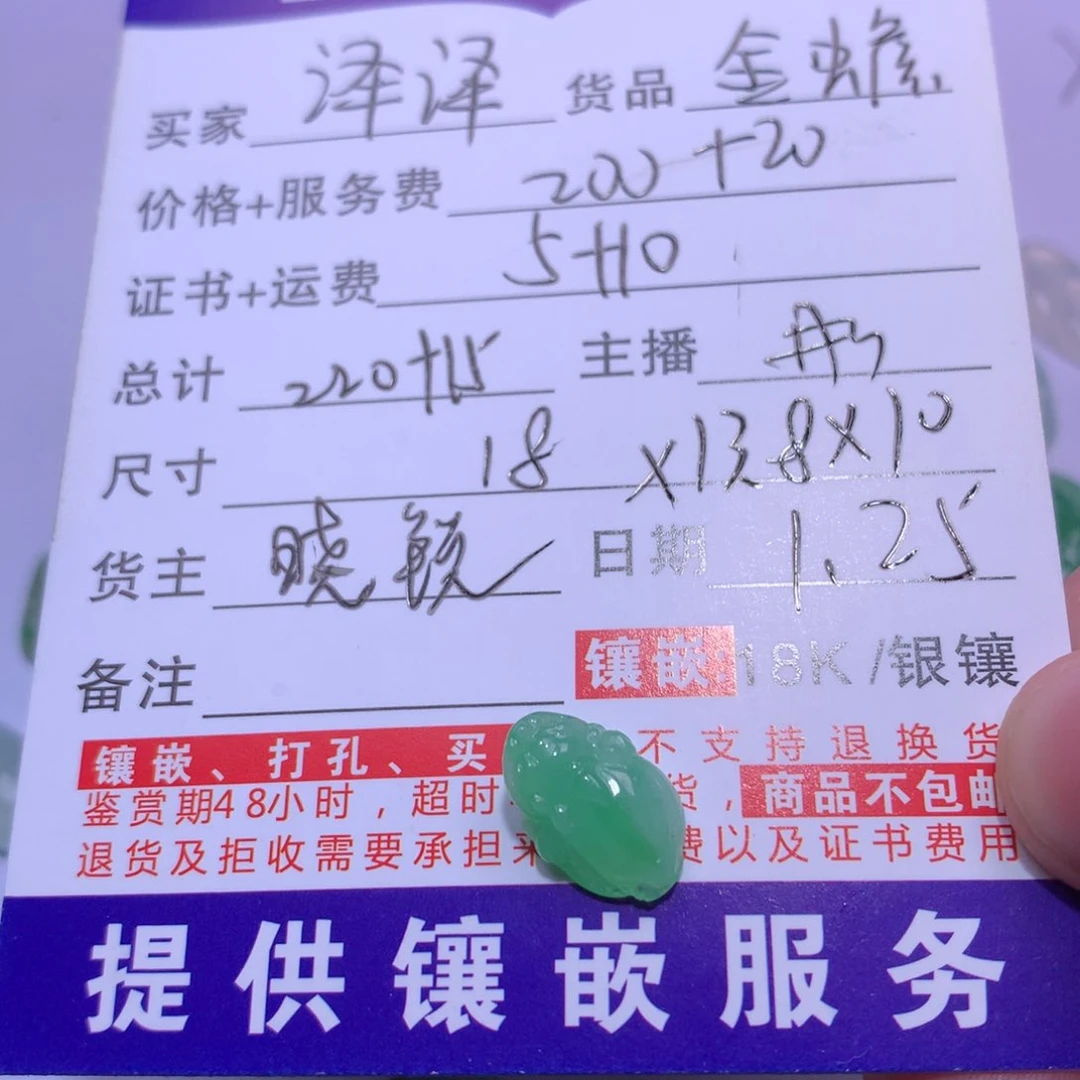 买家 泽泽 货品 金蟾
价格+服务费 200+20
证书+运费 5+10
总计 220+15 主播
尺寸 18×13.8×10
货主 晓 日期 1.25
备注 镶嵌:18K/银镶
镶嵌、打孔、买 不支持退换货
鉴赏期48小时，超时 货，商品不包邮
退货及拒收需要承担 费以及证书费用
提供镶嵌服务